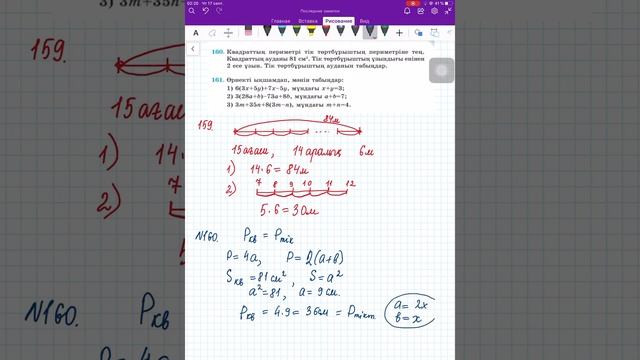 02:20 Чт 17 сент.
41 %
Последние заметки
Главная Вставка Рисование Вид
160. Квадраттың периметрі тік төртбұрыштың периметріне тең.
Квадраттың ауданы 81 см². Тік төртбұрыштың ұзындығы енінен
2 есе ұзын. Тік төртбұрыштың ауданын табыңдар.
161. Өрнекті ықшамдап, мәнін табыңдар:
1) 6(3x+5y)+7x−5y, мұндағы x+y=3;
2) 3(28a+b)−73a+8b, мұндағы a+b=7;
3) 3m+35n+8(3m−n), мұндағы m+n=4.
159.
84м
15 ағаш, 14 аралық 6м
1) 14·6=84м
2) 7 8 9 10 11 12
5·6=30м
N160. Pкв = Pтік
P=4a, P=2(a+в)
Sкв=81см², S=a²
a²=81, a=9см.
Pкв = 4·9=36см = Pтікт
a=2x
в=x
3) 3m+35n
159.
15 ағаш
1)
2)
N160. Pкв